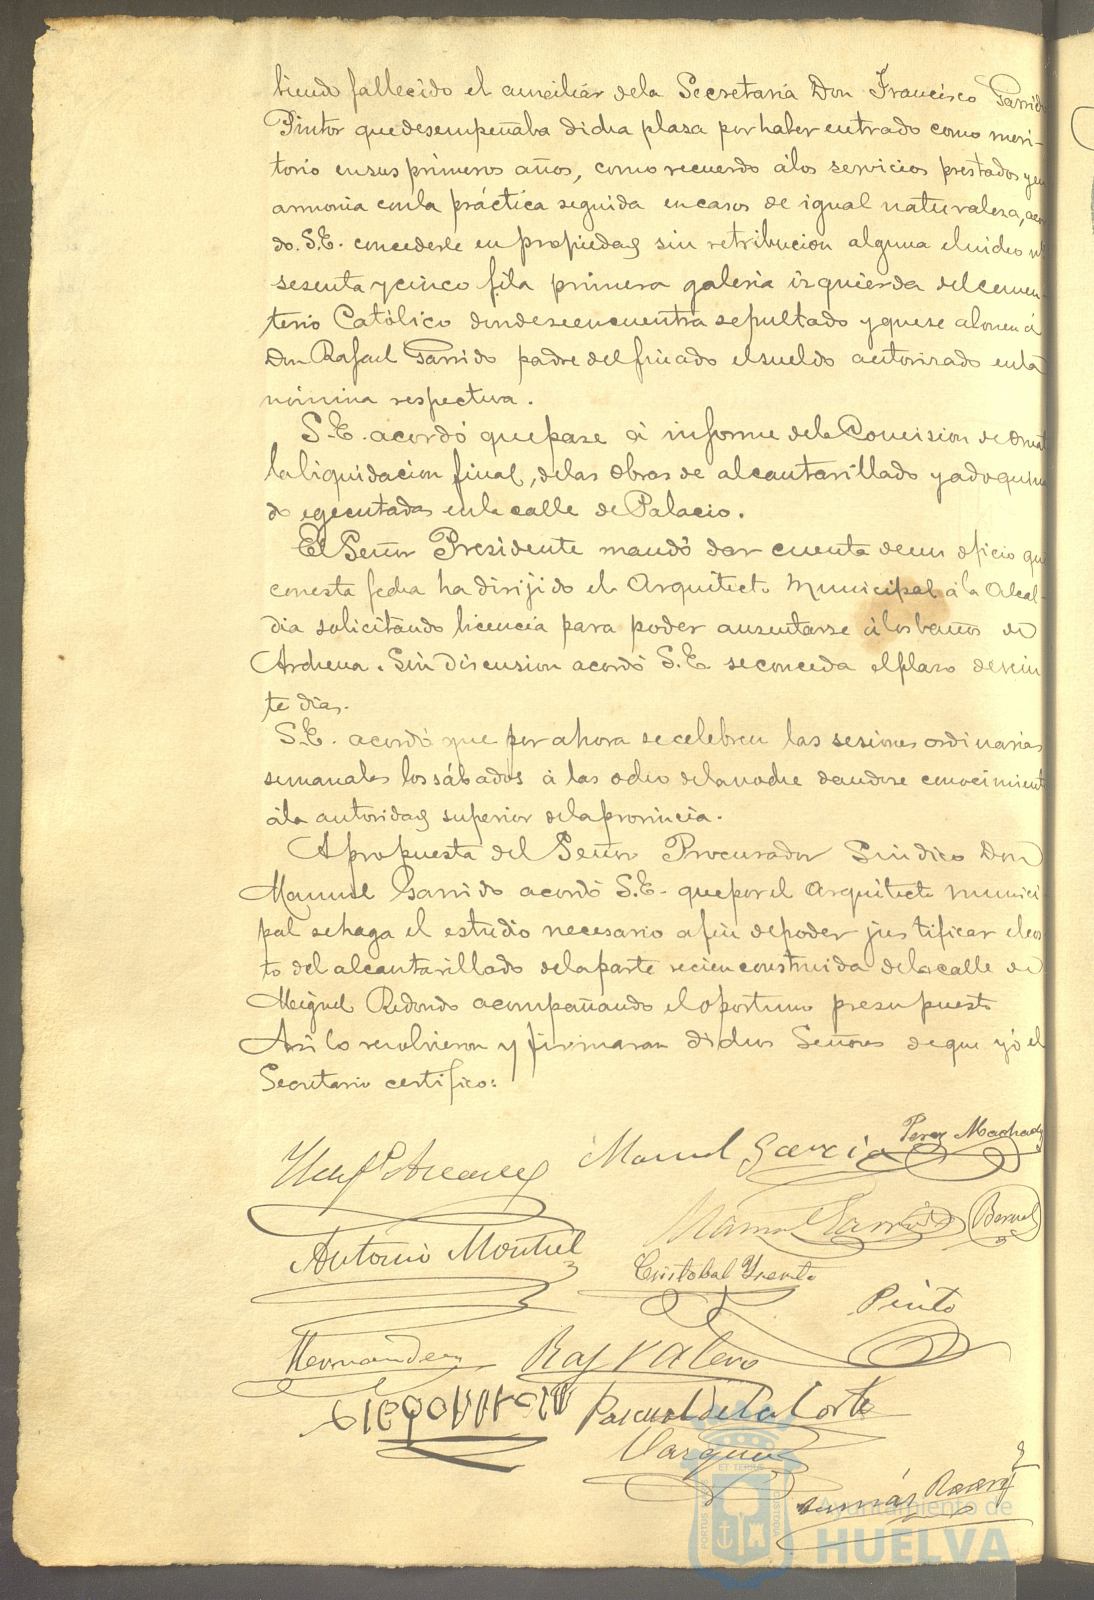 biendo fallecido el auxiliar dela Secretaría Don Francisco Garrido
Pintor que desempeñaba dicha plaza por haber entrado como meri-
torio en sus primeros años, como recuerdo álos servicios prestados y en
armonia conla práctica seguida en casos de igual naturaleza, acor
do. S.E. concederle en propiedad sin retribucion alguna el nicho nº
sesenta y cinco fila primera galeria izquierda del cemen-
terio Católico donde se encuentra sepultado y que se abone á
Don Rafael Garrido padre del finado el sueldo autorizado en la
nómina respectiva.
S.E. acordó que pase á informe dela Comision de Ornat
la liquidacion final, delas obras de alcantarillado y adoquina
do egecutadas en la calle de Palacio.
El Señor Presidente mandó dar cuenta de un oficio que
con esta fecha ha dirijido el Arquitecto Municipal á la Alcal-
dia solicitando licencia para poder ausentarse á los baños de
Archena. Sin discusion acordó S.E. se conceda el plazo de vein
te dias.
S.E. acordó que por ahora se celebren las sesiones ordinarias
semanales los sábados á las ocho de la noche dandose conocimient
á la autoridad superior de la provincia.
A propuesta del Señor Procurador Sindico Don
Manuel Garrido acordó S.E. que por el Arquitecto munici
pal se haga el estudio necesario a fin de poder justificar el cos
to del alcantarillado de la parte recien construida de la calle de
Miguel Redondo acompañando el oportuno presupuesto
Asi lo resolvieron y firmaran dichos Señores de que yó el
Secretario certifico:
Manuel Garcia Perez Machado
Garrido Bernal
Antonio Montiel
Cristobal
Pinto
Hernandez Raf Valero
Pascual de la Corte
Vazquez
Tomás
Ayuntamiento de
HUELVA